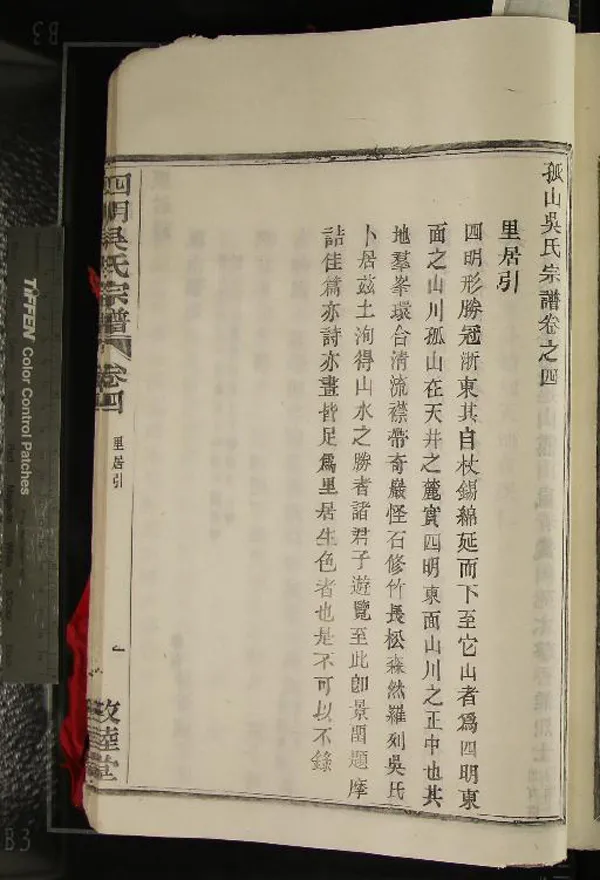 孤山吳氏宗譜卷之四
里居引
四明形勝冠浙東其自杖錫綿延而下至它山者爲四明東
面之山川孤山在天井之麓實四明東面山川之正中也其
地羣峯環合清流襟帶奇巖怪石修竹長松森然羅列吳氏
卜居茲土洵得山水之勝者諸君子遊覽至此卽景留題摩
詰佳篇亦詩亦畫皆足爲里居生色者也是不可以不錄
四明吳氏宗譜
卷四
里居引
一
敦睦堂
TIFFEN Color Control Patches
B3
B3